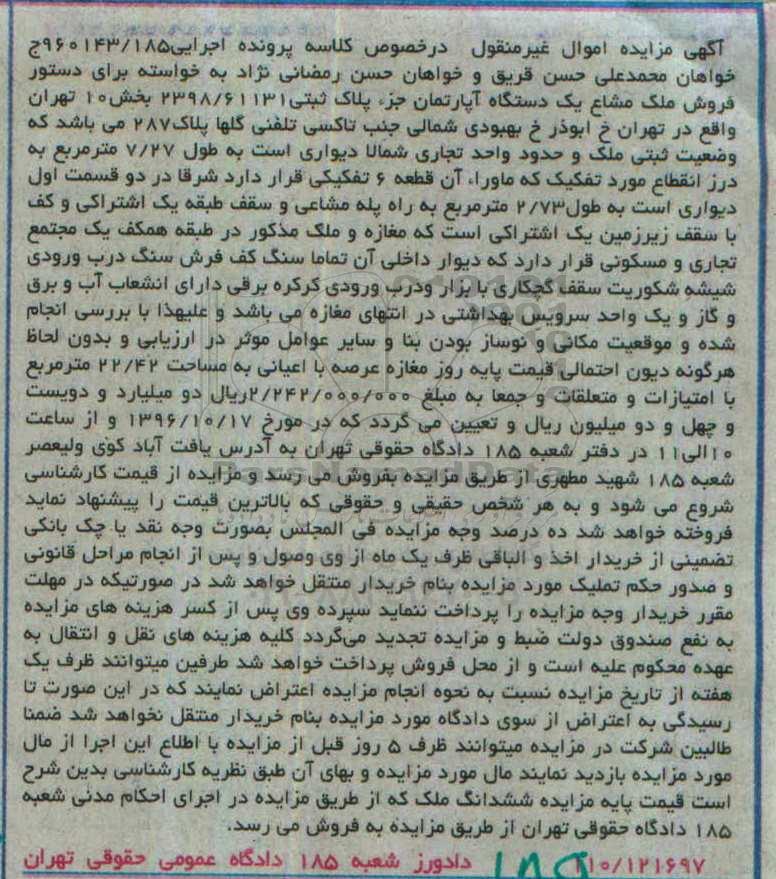 آگهی مزایده اموال غیرمنقول درخصوص کلاسه پرونده اجرایی۹۶۰۱۴۳/۱۸۵ج
خواهان محمدعلی حسن قریق و خواهان حسن رمضانی نژاد به خواسته برای دستور
فروش ملک مشاع یک دستگاه آپارتمان جزء پلاک ثبتی۲۳۹۸/۶۱۱۳۱ بخش۱۰ تهران
واقع در تهران خ ابوذر خ بهبودی شمالی جنب تاکسی تلفنی گلها پلاک۲۸۷ می باشد که
وضعیت ثبتی ملک و حدود واحد تجاری شمالا دیواری است به طول ۷/۲۷ مترمربع به
درز انقطاع مورد تفکیک که ماوراء آن قطعه ۶ تفکیکی قرار دارد شرقا در دو قسمت اول
دیواری است به طول۲/۷۳ مترمربع به راه پله مشاعی و سقف طبقه یک اشتراکی و کف
با سقف زیرزمین یک اشتراکی است که مغازه و ملک مذکور در طبقه همکف یک مجتمع
تجاری و مسکونی قرار دارد که دیوار داخلی آن تماما سنگ کف فرش سنگ درب ورودی
شیشه شکوریت سقف گچکاری با بزار ودرب ورودی کرکره برقی دارای انشعاب آب و برق
و گاز و یک واحد سرویس بهداشتی در انتهای مغازه می باشد و علیهذا با بررسی انجام
شده و موقعیت مکانی و نوساز بودن بنا و سایر عوامل موثر در ارزیابی و بدون لحاظ
هرگونه دیون احتمالی قیمت پایه روز مغازه عرصه با اعیانی به مساحت ۲۲/۴۲ مترمربع
با امتیازات و متعلقات و جمعا به مبلغ ۲/۲۴۲/۰۰۰/۰۰۰ریال دو میلیارد و دویست
و چهل و دو میلیون ریال و تعیین می گردد که در مورخ ۱۳۹۶/۱۰/۱۷ و از ساعت
۱۰الی۱۱ در دفتر شعبه ۱۸۵ دادگاه حقوقی تهران به آدرس یافت آباد کوی ولیعصر
شعبه ۱۸۵ شهید مطهری از طریق مزایده بفروش می رسد و مزایده از قیمت کارشناسی
شروع می شود و به هر شخص حقیقی و حقوقی که بالاترین قیمت را پیشنهاد نماید
فروخته خواهد شد ده درصد وجه مزایده فی المجلس بصورت وجه نقد یا چک بانکی
تضمینی از خریدار اخذ و الباقی ظرف یک ماه از وی وصول و پس از انجام مراحل قانونی
و صدور حکم تملیک مورد مزایده بنام خریدار منتقل خواهد شد در صورتیکه در مهلت
مقرر خریدار وجه مزایده را پرداخت ننماید سپرده وی پس از کسر هزینه های مزایده
به نفع صندوق دولت ضبط و مزایده تجدید می‌گردد کلیه هزینه های نقل و انتقال به
عهده محکوم علیه است و از محل فروش پرداخت خواهد شد طرفین میتوانند ظرف یک
هفته از تاریخ مزایده نسبت به نحوه انجام مزایده اعتراض نمایند که در این صورت تا
رسیدگی به اعتراض از سوی دادگاه مورد مزایده بنام خریدار منتقل نخواهد شد ضمنا
طالبین شرکت در مزایده میتوانند ظرف ۵ روز قبل از مزایده با اطلاع این اجرا از مال
مورد مزایده بازدید نمایند مال مورد مزایده و بهای آن طبق نظریه کارشناسی بدین شرح
است قیمت پایه مزایده ششدانگ ملک که از طریق مزایده در اجرای احکام مدنی شعبه
۱۸۵ دادگاه حقوقی تهران از طریق مزایده به فروش می رسد.
۱۱۰/۱۲۱۶۹۷ ۱۸۵ دادورز شعبه ۱۸۵ دادگاه عمومی حقوقی تهران